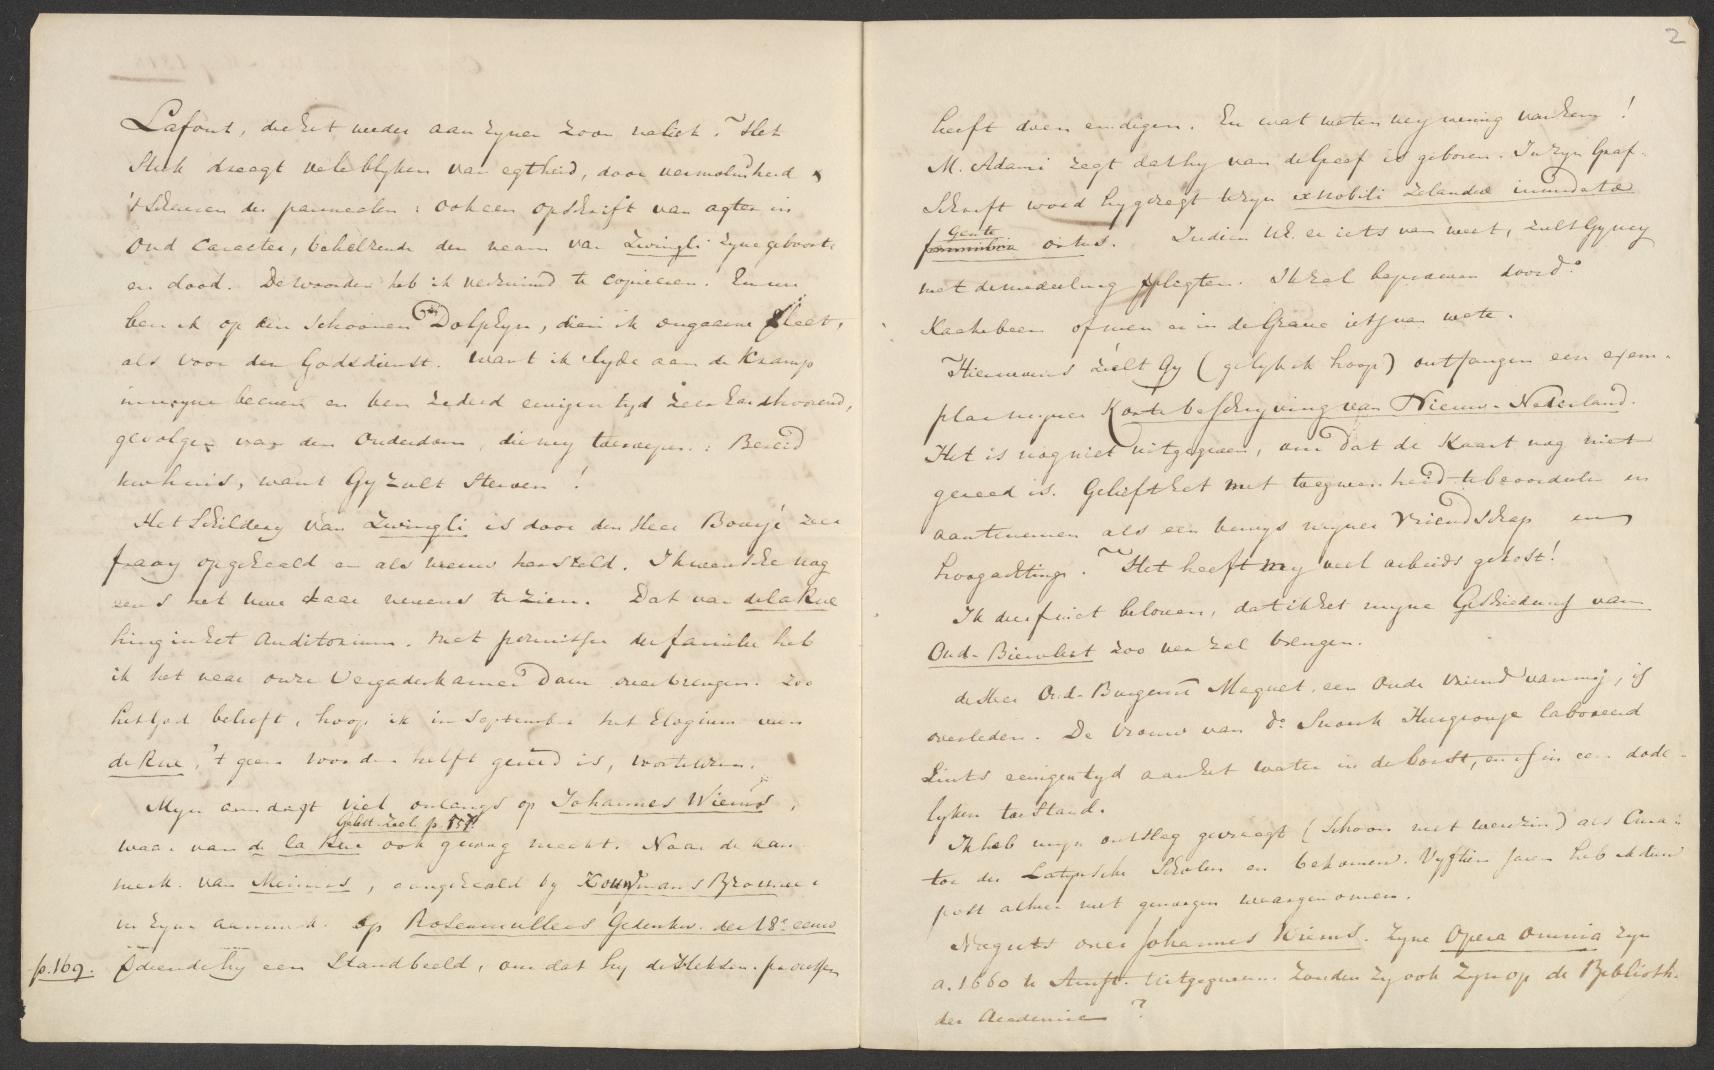 Lafont, die het weder aan zynen zoon naliet. Het
stuk draagt vele blyken van egtheid, door vermolmdheid &
't scheuren der panneelen: ook een opschrift van agter in
oud caracter, behelzende den naam van Zwingli zyne geboorte
en dood. De woorden heb ik verzuimd te copieeren. En nu
ben ik op den schoonen Dolphyn, dien ik ongaerne sleet,
als voor den Godsdienst. Want ik lyde aan de kramp
in myne beenen en ben zederd eenigen tyd zeer hardhoorend,
gevolgen van den Ouderdom, die my toeroepen: Bereid
uw huis, want Gy zult sterven!
Het Schildery van Zwingli is door den Heer Bourjé zeer
fraay opgehaald en als nieuw hersteld. Ik wenschte nog
eens het uwe daar nevens te zien. Dat van de la Rue
hing in het Auditorium. Met permissie der familie heb
ik het naar onze Vergaderkamer doen overbrengen. Zoo
het God belieft, hoop ik in September het Elogium van
de Rue, 't geen voor den helft gereed is, voortelezen.
Myn aandagt viel onlangs op Johannes Wiems,
Gelett. Zeel. p. 157
waar van de la Rue ook gewag maakt. Naar de aan
merk. van Meiners, aangehaald by
in zyne aanmerk. op Rosenmullers Gedenkw. der 18e eeuw
p. 169. diende hy een Standbeeld, om dat hy de Heksen-processen
2
heeft doen eindigen. En wat weten wy weinig van hem!
M. Adami zegt dat hy van de Graaf is geboren. In zyn Graf-
schrift word hy gezegt te zyn ex nobili Zelandiae inundatae
gente
ortus. Indien UE. er iets van weet, zult Gy my
met de mededeeling verpligten. Ik zal beproeven door Ds.
Kackebeen of men er in de Grave iets van wete.
Hiernevens zult Gy (gelyk ik hoop) ontfangen een exem-
plaar myner Korte beschryving van Nieuw-Nederland.
Het is nog niet uitgegeven, om dat de Kaart nog niet
gereed is. Gelieft het met toegevenheid te beoordeelen en
aantenemen als een bewys myner vriendschap en
hoogachting. Het heeft my veel arbeids gekost!
Ik durf niet beloven, dat ik het myne Geschiedenis van
Oud-Biervliet zoo ver zal brengen.
de Heer Oud-Burgemr Maquet, een oude vriend van mij, is
overleden. De Vrouw van Ds. Snouck Hurgronje laboreerd
zints eenigen tyd aan het water in de borst, en is in een dode-
lyken toestand.
Ik heb myn ontslag gevraagt (schoon met weerzin) als Cura-
tor der Latynsche Scholen en bekomen. Vyftien jaren heb ik dien
post alhier met genoegen waargenomen.
Nog iets over Johannes Wiems. Zyne Opera Omnia zyn
a. 1660 te Amst. uitgegeven. Zouden zy ook zyn op de Biblioth.
der Academie?